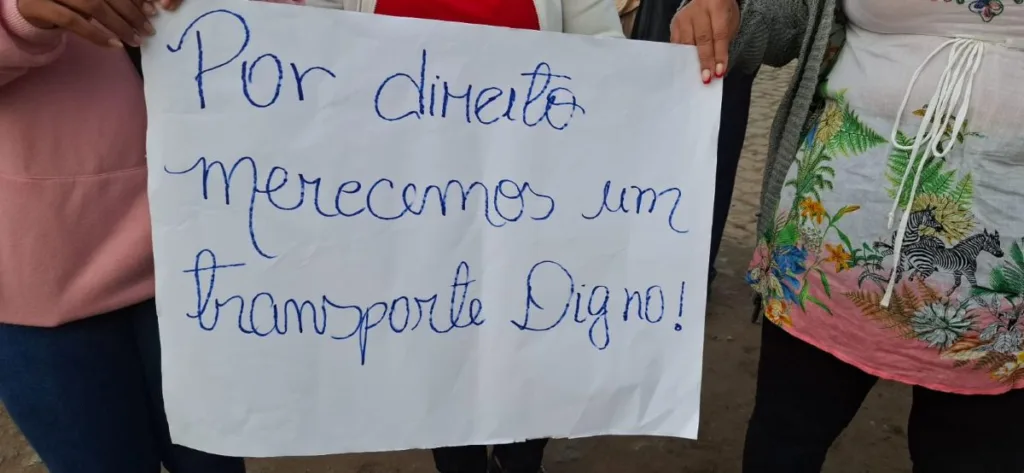 Por direito
merecemos um
transporte Digno!